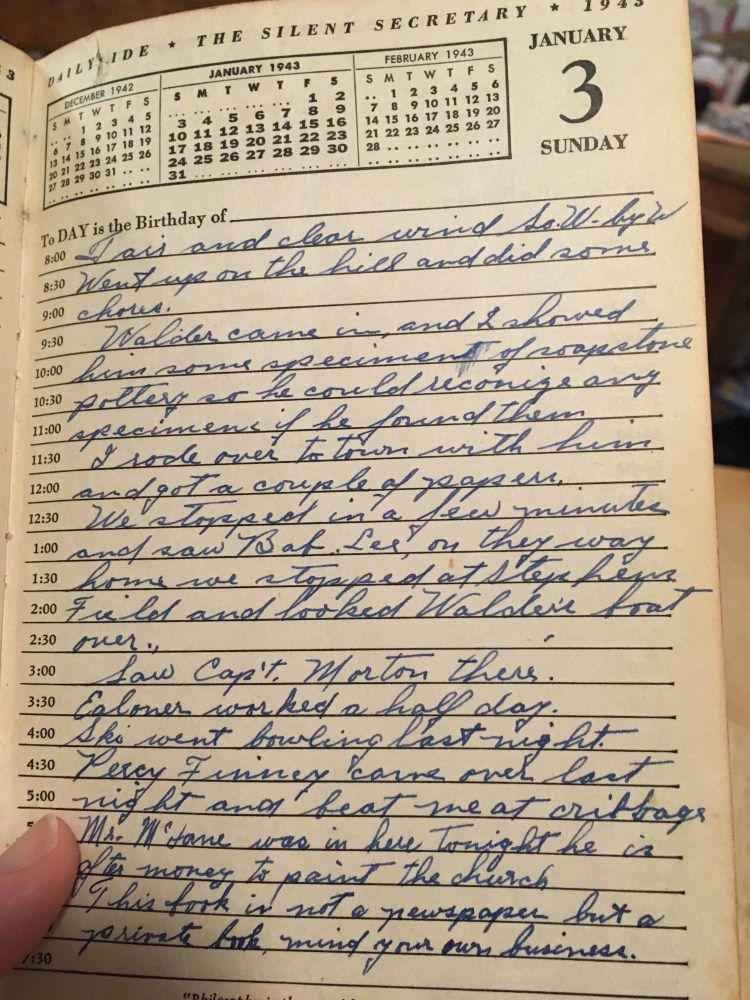 DAILY IDE ★ THE SILENT SECRETARY ★ 1943
DECEMBER 1942
S M T W T F S
.. .. 1 2 3 4 5
6 7 8 9 10 11 12
13 14 15 16 17 18 19
20 21 22 23 24 25 26
27 28 29 30 31 .. ..
JANUARY 1943
S M T W T F S
1 2
3 4 5 6 7 8 9
10 11 12 13 14 15 16
17 18 19 20 21 22 23
24 25 26 27 28 29 30
31
FEBRUARY 1943
S M T W T F S
.. 1 2 3 4 5 6
7 8 9 10 11 12 13
14 15 16 17 18 19 20
21 22 23 24 25 26 27
28
JANUARY
3
SUNDAY
To DAY is the Birthday of
8:00 Fair and clear wind So.W-by W
8:30 Went up on the hill and did some
9:00 chores.
9:30 Walder came in, and I showed
10:00 him some specimens of soapstone
10:30 pottery so he could reconize any
11:00 specimens if he found them
11:30 I rode over to town with him
12:00 and got a couple of papers.
12:30 We stopped in a few minutes
1:00 and saw Bab. Lee, on they way
1:30 home we stopped at Stephens
2:00 Field and looked Walder's boat
2:30 over.,
3:00 Saw Cap't. Morton there.
3:30 worked a half day.
4:00 Ski went bowling last night.
4:30 Percy Finney came over last
5:00 night and beat me at cribbage
Mr. was in here tonight he is
after money to paint the church
This book is not a newspaper but a
private book, mind your own business.
7:30